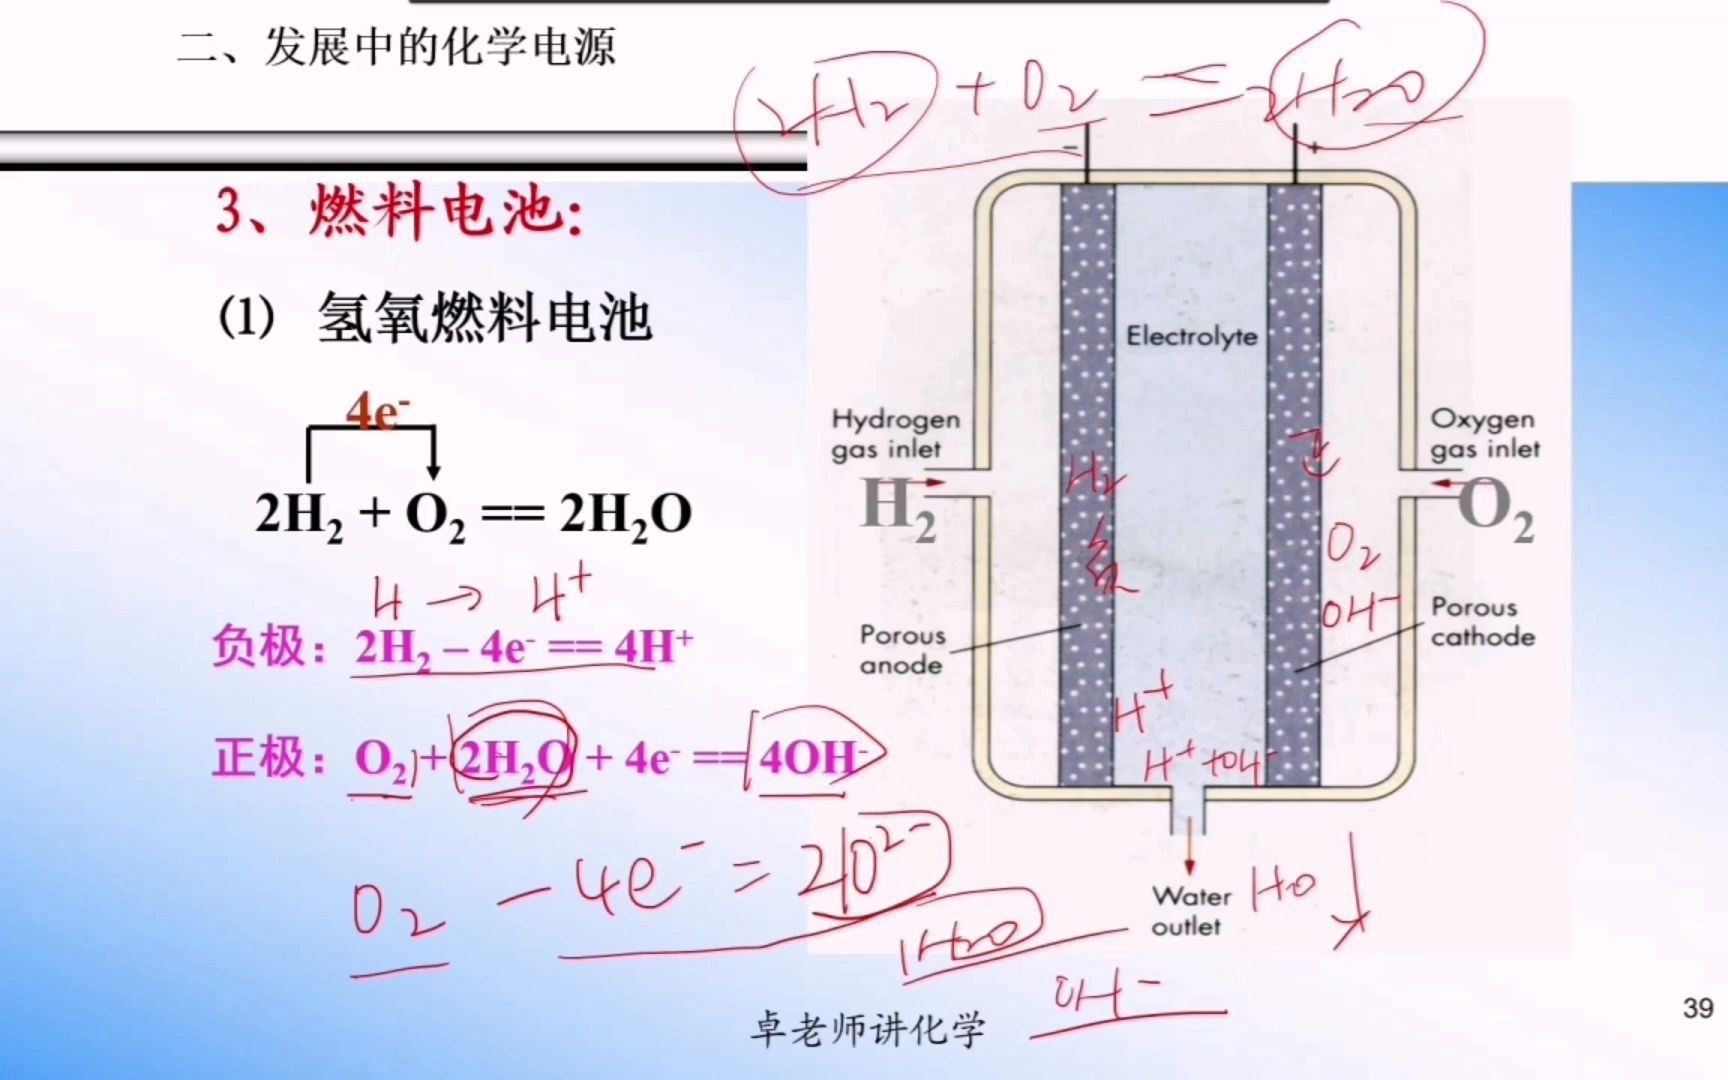 二、发展中的化学电源
2H₂ + O₂ = 2H₂O
− +
3、燃料电池:
(1) 氢氧燃料电池
4e⁻
2H₂ + O₂ == 2H₂O
H → H⁺
负极: 2H₂ – 4e⁻ == 4H⁺
正极: O₂ + 2H₂O + 4e⁻ == 4OH⁻
O₂ − 4e⁻ = 2O²⁻
H₂O
OH⁻
Electrolyte
Hydrogen
gas inlet
H₂
H₂
Oxygen
gas inlet
O₂
正
O₂
OH⁻
Porous
anode
Porous
cathode
H⁺
H⁺ + OH⁻
Water
outlet
卓老师讲化学
39